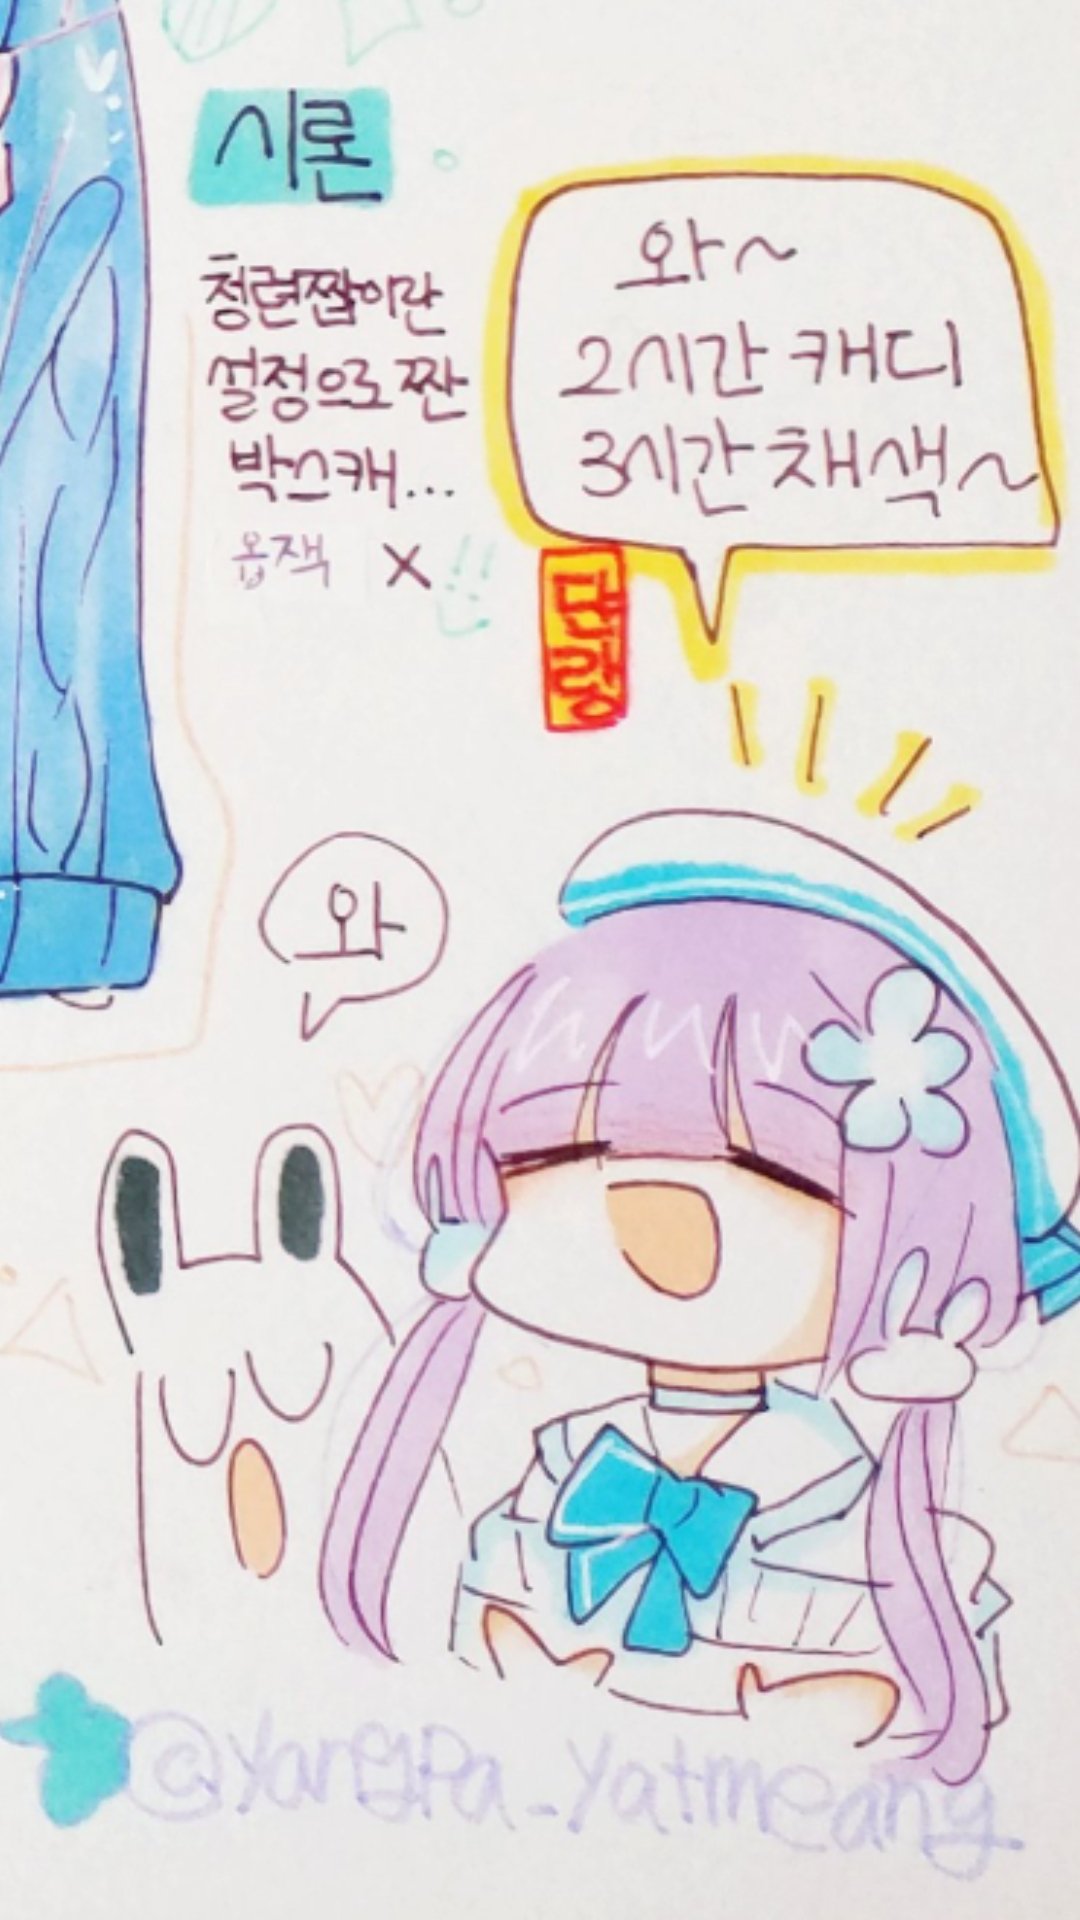 시론
청련짭이란
설정으로 짠
박스캐...
옵잭 X
와~
2시간 캐디
3시간 채색~
와
@yangpa_yatmeang